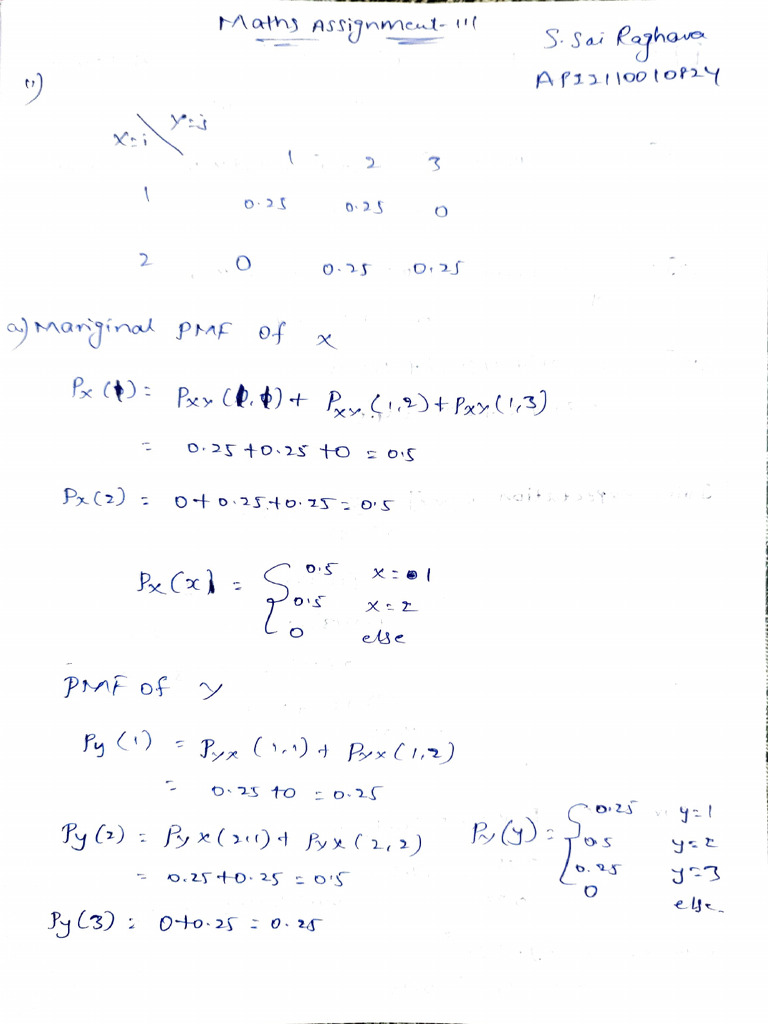 Maths Assignment-III
S. Sai Raghava
AP22110010824
(1)
X=i \ Y=j
1 2 3
1 0.25 0.25 0
2 0 0.25 0.25
a) Mariginal PMF of x
Px (1) = Pxy (1,1) + Pxy (1,2) + Pxy (1,3)
= 0.25 + 0.25 + 0 = 0.5
Px (2) = 0 + 0.25 + 0.25 = 0.5
Px (x) = { 0.5 x = 1
0.5 x = 2
0 else
PMF of y
Py (1) = Pyx (1,1) + Pyx (1,2)
= 0.25 + 0 = 0.25
Py (2) = Pyx (2,1) + Pyx (2,2)
= 0.25 + 0.25 = 0.5
Py (3) = 0 + 0.25 = 0.25
Py (y) = { 0.25 y = 1
0.5 y = 2
0.25 y = 3
0 else